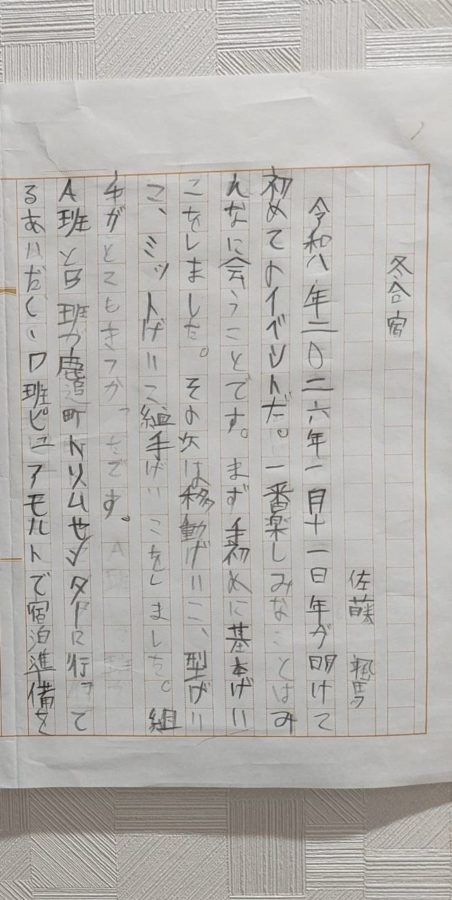 冬合宿
佐藤
令和八年二〇二六年一月十一日年が明けて
初めてのイベントだ。一番楽しみなことはみ
んなに会うことです。まず手初めに基本げい
こをしました。その次は移動げいこ、型げい
こ、ミットげいこ組手げいこをしました。組
手がとてもきつかったです。
A班とB班が鹿追町トリムセンターに行って
るあいだC、D班ピュアモルトで宿泊準備を